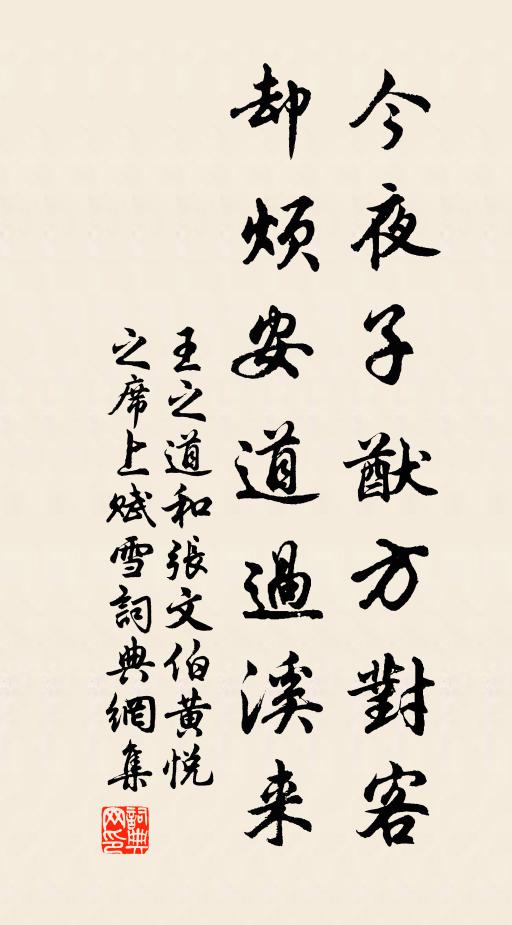 今夜子猷方對客
却煩安道過溪来
王之道和張文伯黄悅
之席上赋雪詞典網集
詞典
网印